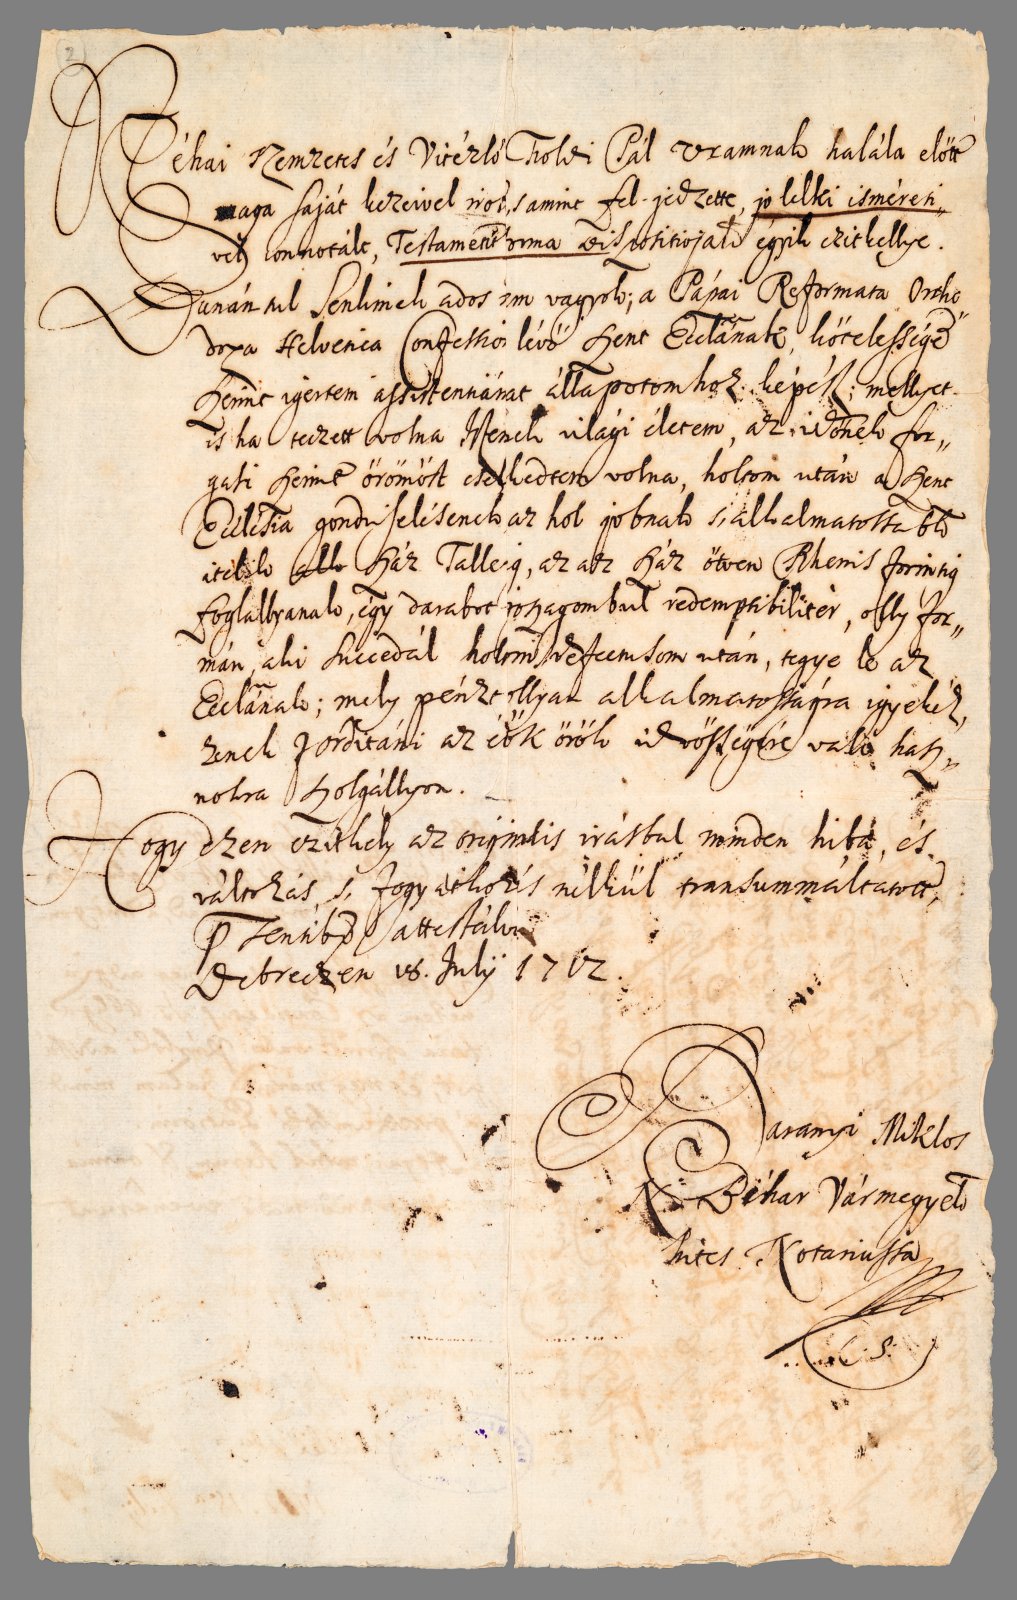 2
Néhai Nemzetes és Vitézló Tholdi Pál Uramnak halála elött
maga saját kezeivel irot, s amint fel-jedzette, jo lelki isméreti„
vel connotált, Testamentũma dispositiojak egyik czikkellye.
Dunántul Senkinek ados nem vagyok; a Pápai Reformata Ortho„
doxa Helvetica Confession lévö Szent Ecclãnak, kötelességẽ
szerint igertem assistentiámat állapotomhoz képést; mellyet
is ha teczett volna Istenek világi életem, az idönek for„
gasi szerint örömöst cselekedtem volna, holtom után a Szent
Ecclesia gondviselésenek az hol jobnak s, alkalmatossabb
itelik Száz Tallerig, az az Száz ötven Rhenis forintig
foglallyanak, egy darabot joszagombul redemptibiliter, olly for„
mán, aki succedál holtom defectusom után, tegye le az
Ecclãnak; mely pénzt ollyan alkalmatosságra igyekéz„
zenek forditani az élök örök idvösségére való hasz„
nokra szolgállyon.
Hogy ezen czikkely az originalis irásbul minden hiba, és
változás, s, fogyatkozás nélkül transummáltatott,
attestálom
Debreczen 18. Julÿ 1712.
Baranyi Miklos
N. Bihar Vármegyek
hites Notariussa
L. S.